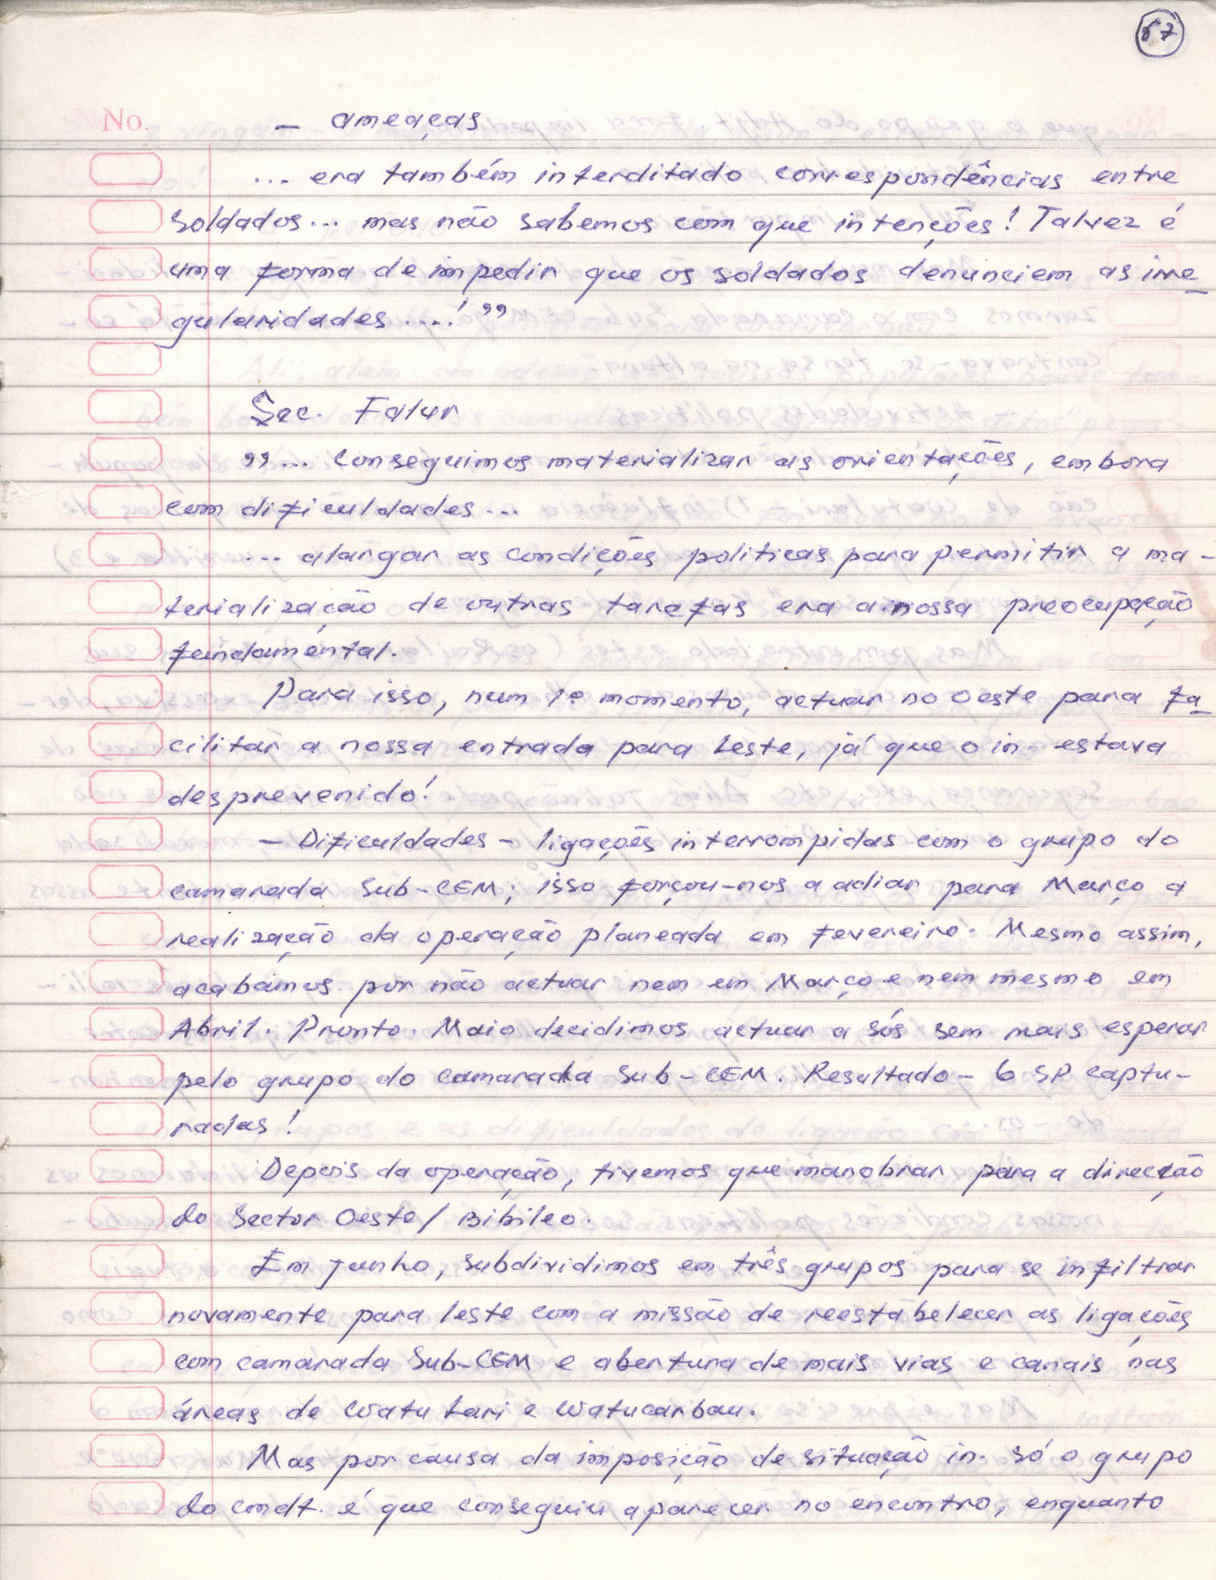 67
No.
- ameaças
... era também interditado correspondências entre
soldados... mas não sabemos com que intenções! Talvez é
uma forma de impedir que os soldados denunciem as irre-
gularidades ....! ”
Sec. Falur
”... conseguimos materializar as orientações, embora
com dificuldades...
... alargar as condições politicas para permitir a ma-
terialização de outras tarefas era a nossa preocupação
fundamental.
Para isso, num 1º momento, actuar no Oeste para fa-
cilitar a nossa entrada para Leste, já que o in- estava
desprevenido!
- Dificuldades - ligações interrompidas com o grupo do
camarada Sub-CEM; isso forçou-nos a adiar para Março a
realização da operação planeada em fevereiro. Mesmo assim,
acabámos por não actuar nem em Março e nem mesmo em
Abril. Pronto. Maio decidimos actuar a sós sem mais esperar
pelo grupo do camarada Sub-CEM. Resultado - 6 SP captu-
radas!
Depois da operação, tivemos que manobrar para a direcção
do Sector Oeste/ Bibileo.
Em Junho, subdividimos em três grupos para se infiltrar
novamente para leste com a missão de reestabelecer as ligações
com camarada Sub-CEM e abertura de mais vias e canais nas
áreas de Watu Lari e Watucarbau.
Mas por causa da imposição de situação in. só o grupo
do cmdt. é que conseguiu aparecer no encontro, enquanto